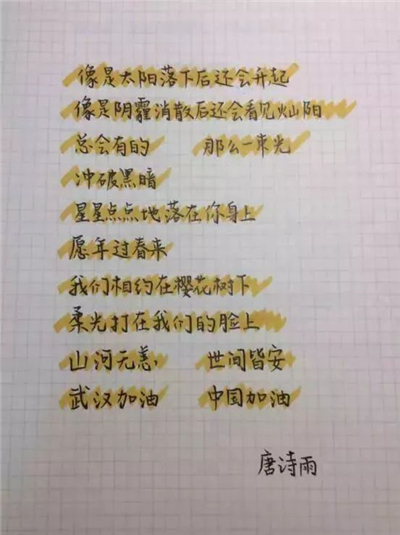 像是太阳落下后还会升起
像是阴霾消散后还会看见灿阳
总会有的 那么一束光
冲破黑暗
星星点点地落在你身上
愿年过春来
我们相约在樱花树下
柔光打在我们的脸上
山河无恙 世间皆安
武汉加油 中国加油
唐诗雨